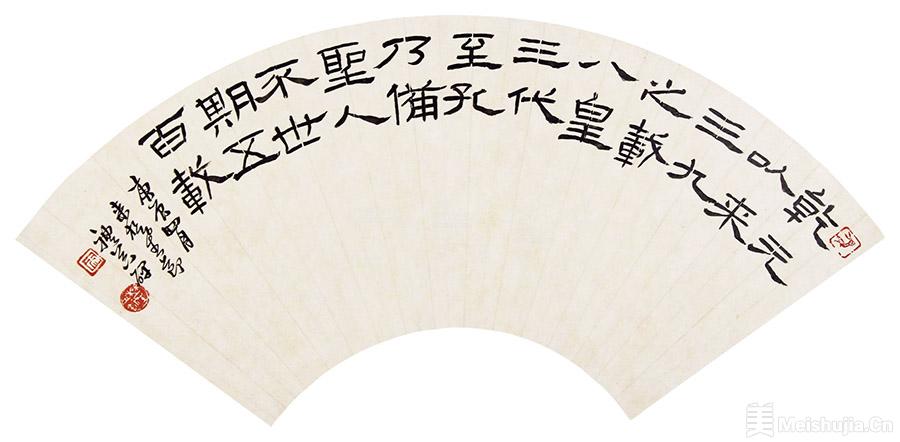 乾元
以来
三九
之載
八皇
三代
至孔
乃備
聖人
不世
期五
百載
庚 四月
禮器碑
美 Meishujia.Cn